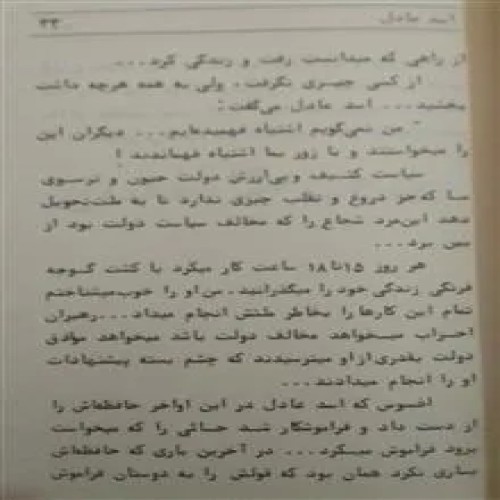 اسد عادل ۳۳
از راهی که میدانست رفت و زندگی کرد...
از کسی چیزی نگرفت، ولی به همه هرچه داشت
بخشید... اسد عادل می‌گفت:
" من نمی‌گویم اشتباه فهمیده‌ایم... دیگران این
را میخواستند و با زور بما اشتباه فهماندند!"
سیاست کثیف و بی‌ارزش دولت جبون و ترسوی
ما که جز دروغ و تقلب چیزی ندارد تا به ملت تحویل
دهد این مرد شجاع را که مخالف سیاست دولت بود از
بین برد...
هر روز ۱۵ تا ۱۸ ساعت کار میکرد با کشت گوجه
فرنگی زندگی خود را میگذرانید. من او را خوب میشناختم
تمام این کارها را بخاطر ملتش انجام میداد... رهبران
احزاب میخواهد مخالف دولت باشد میخواهد موافق
دولت بقدری از او میترسیدند که چشم بسته پیشنهادات
او را انجام میدادند...
افسوس که اسد عادل در این اواخر حافظه‌اش را
از دست داد و فراموشکار شد جائی را که میخواست
برود فراموش میکرد... در آخرین باری که حافظه‌اش
یاری نکرد همان بود که قولش را به دوستان فراموش